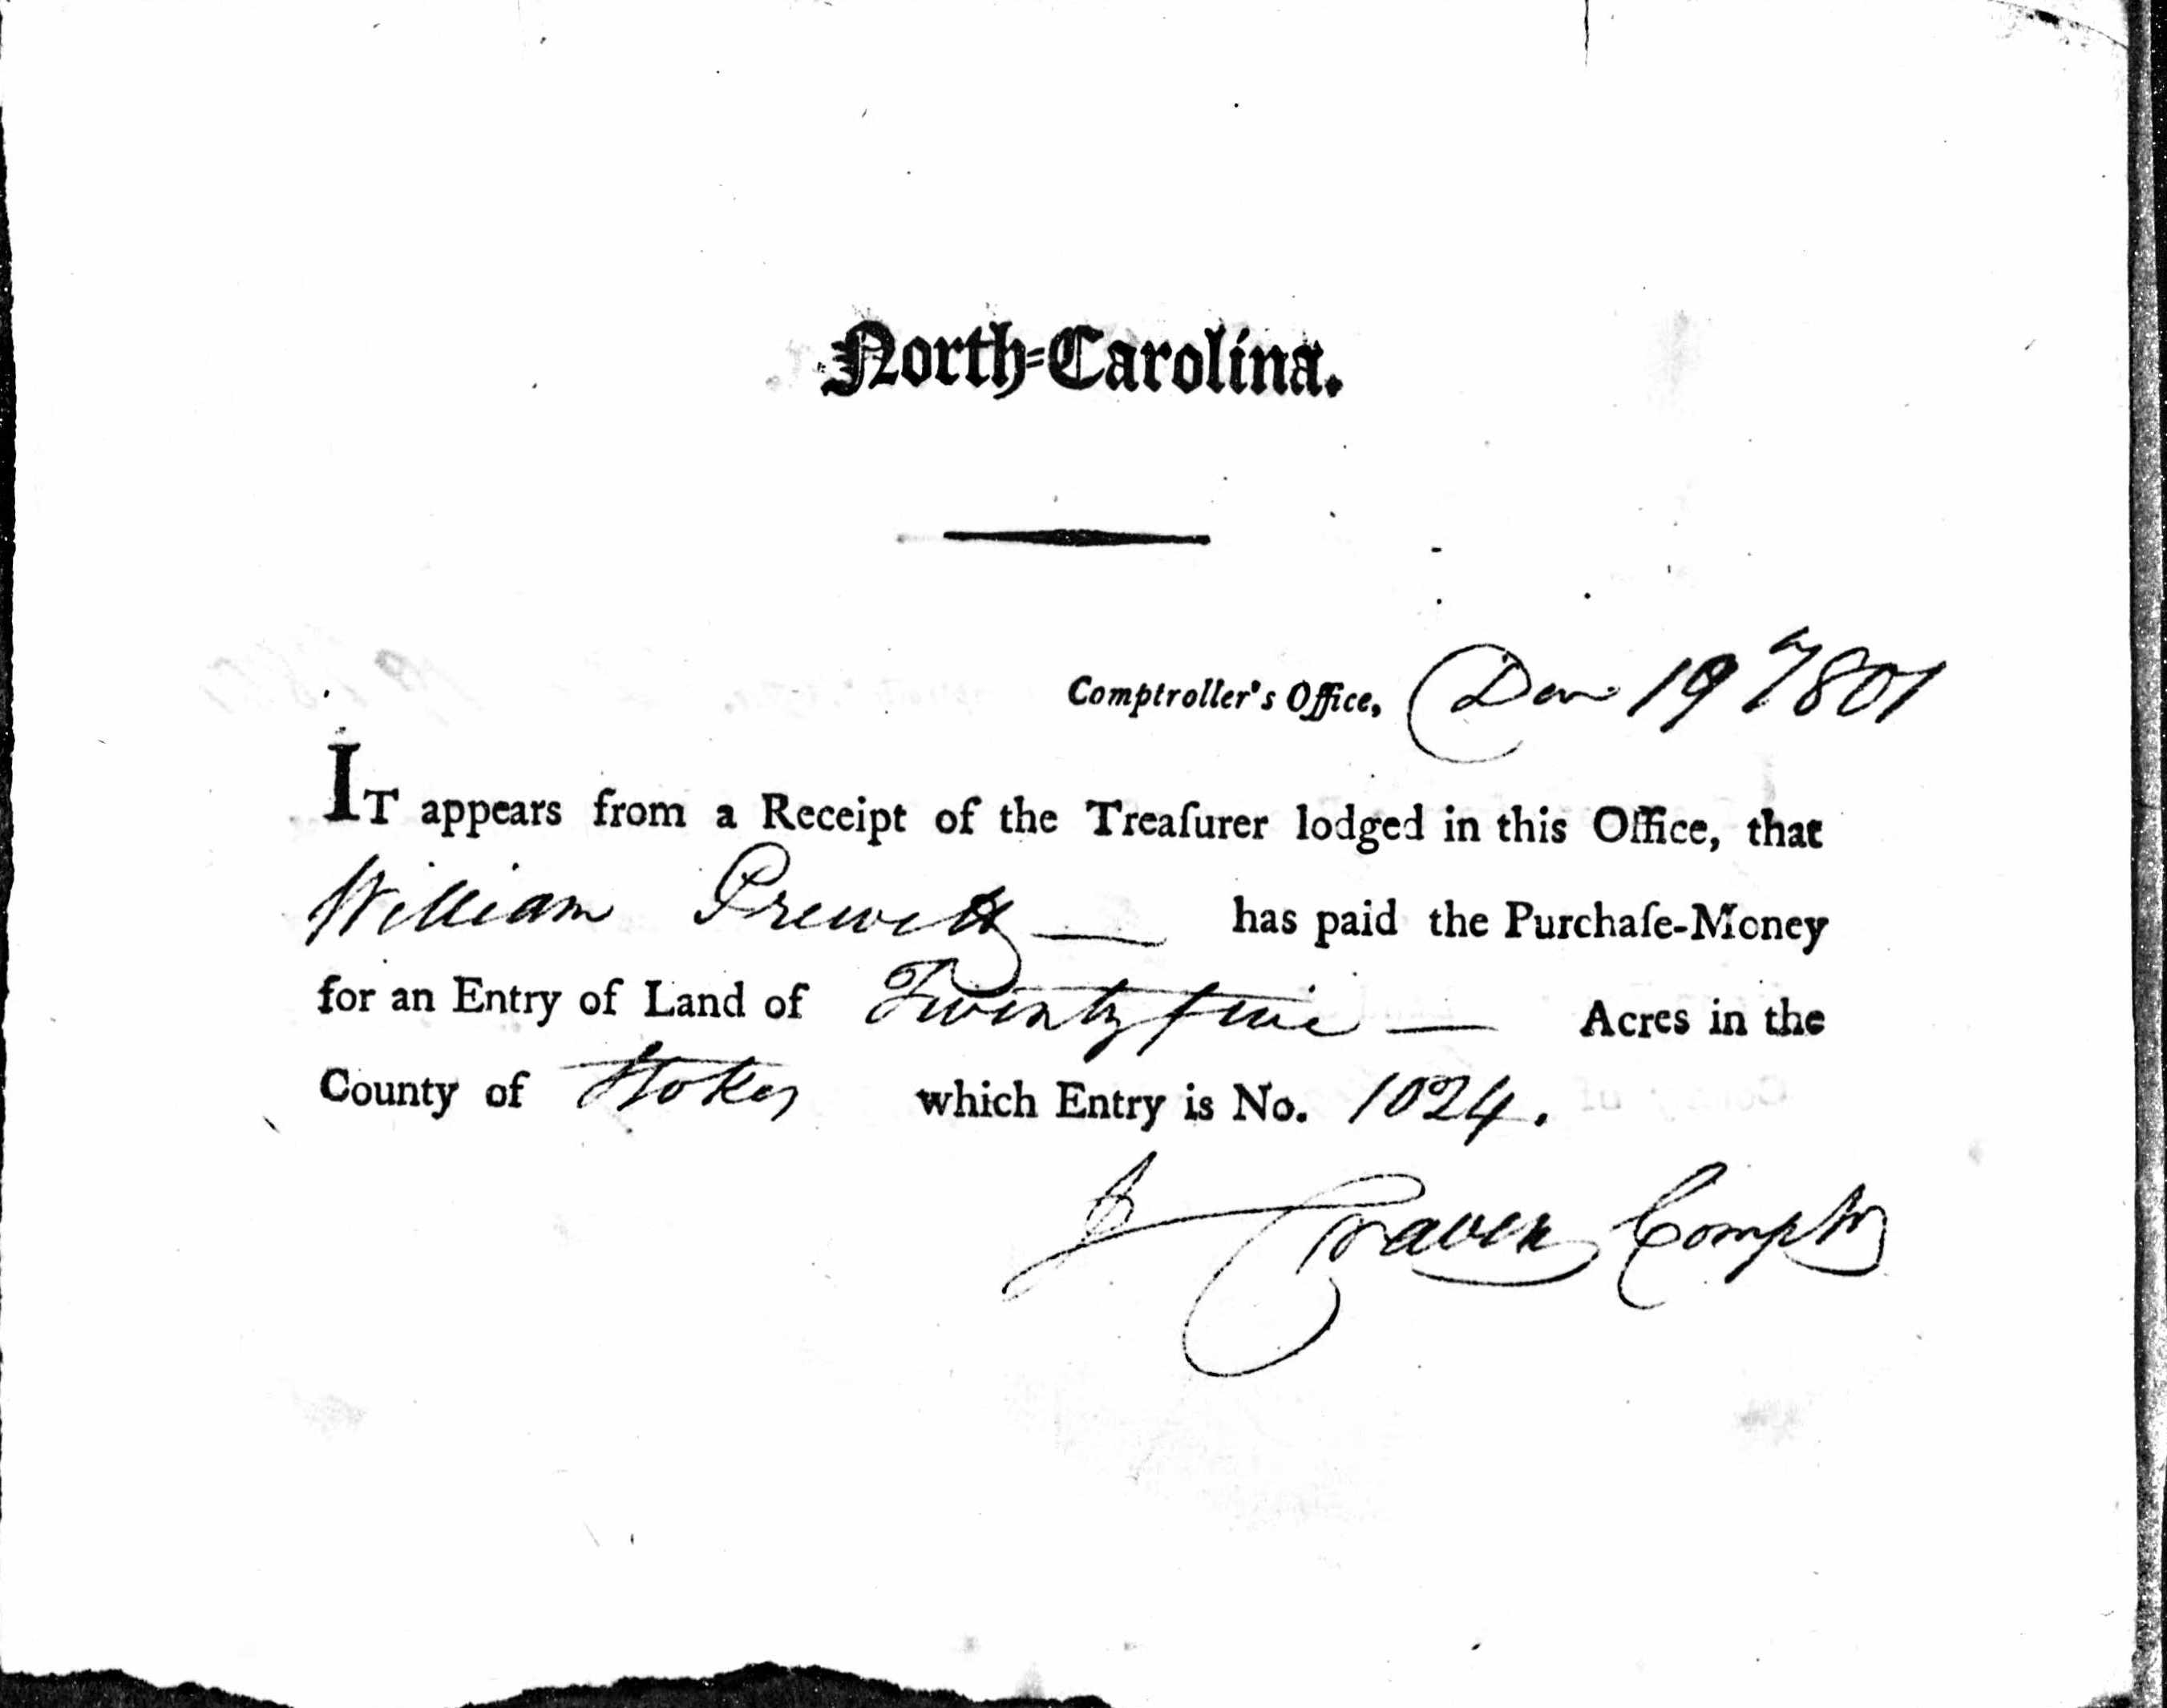 North-Carolina.
Comptroller's Office, Decr 19 1801
IT appears from a Receipt of the Treaſurer lodged in this Office, that
William Prewitt has paid the Purchaſe-Money
for an Entry of Land of Twenty five Acres in the
County of Stokes which Entry is No. 1024.
J Craven Comptr